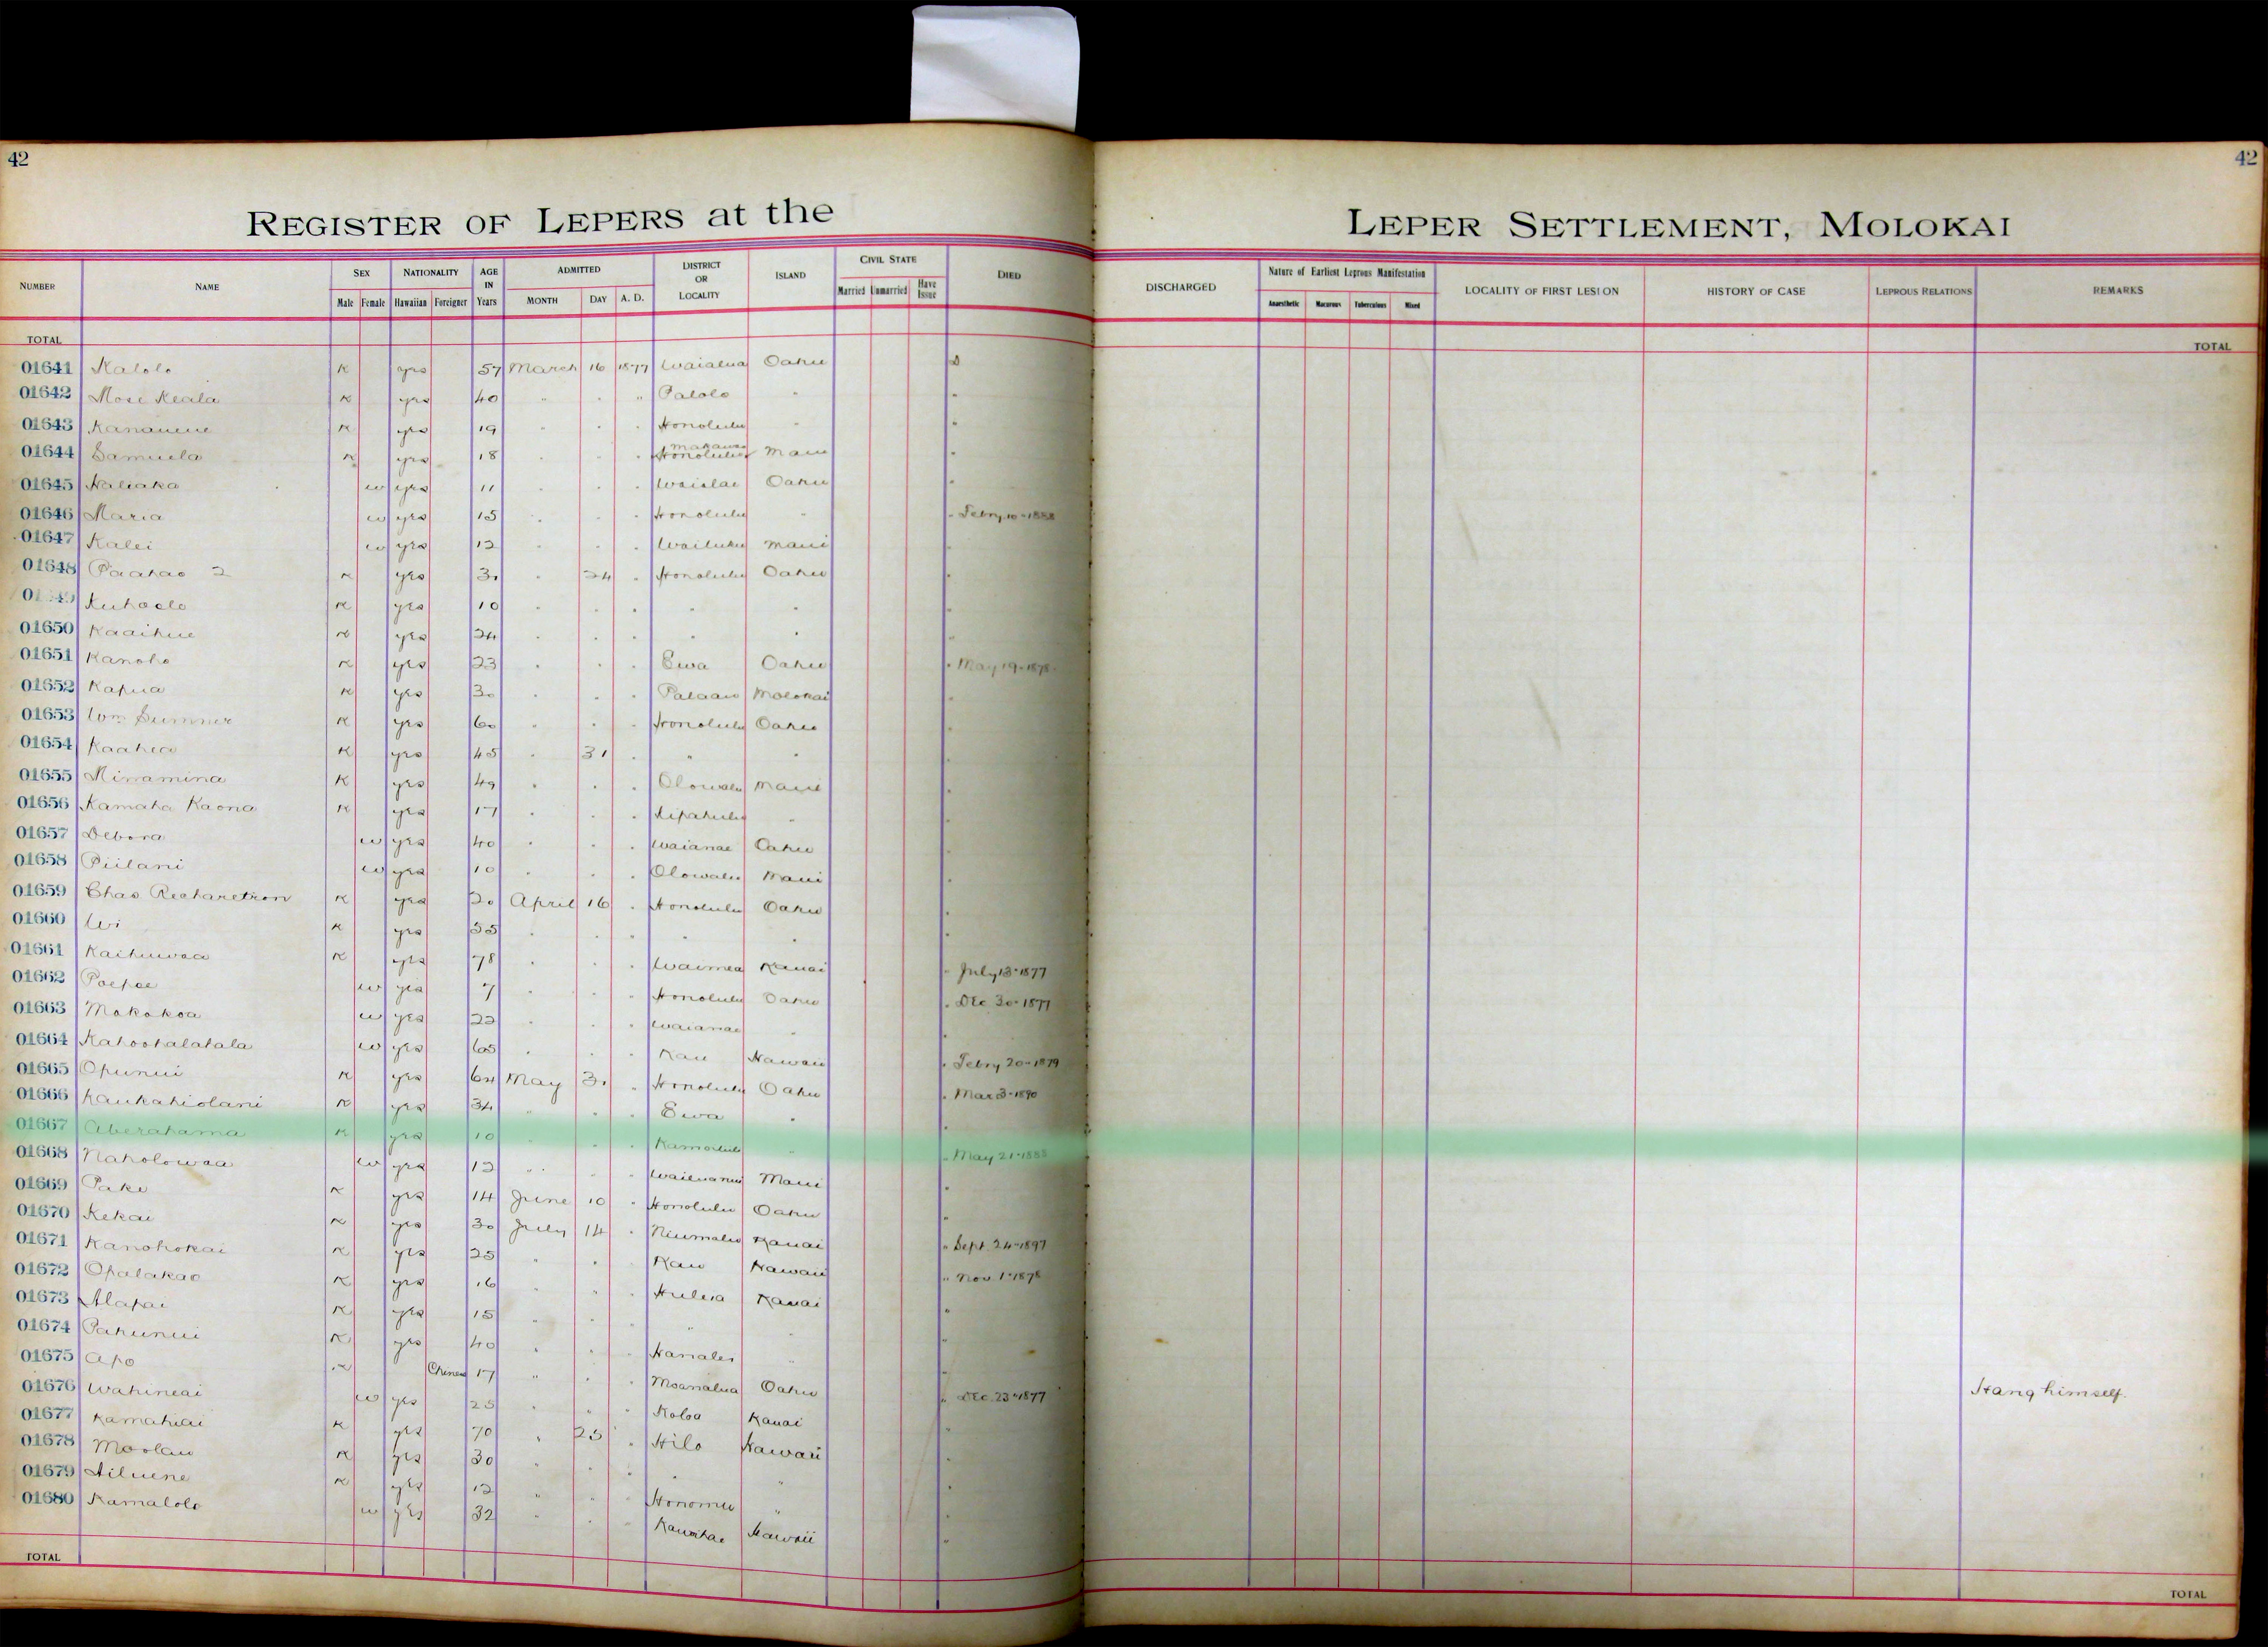 42
42
REGISTER OF LEPERS at the LEPER SETTLEMENT, MOLOKAI
NUMBER NAME SEX NATIONALITY AGE IN Years ADMITTED DISTRICT OR LOCALITY ISLAND CIVIL STATE DIED DISCHARGED Nature of Earliest Leprous Manifestation LOCALITY OF FIRST LESION HISTORY OF CASE LEPROUS RELATIONS REMARKS
Male Female Hawaiian Foreigner MONTH DAY A. D. Married Unmarried Have Issue Anaesthetic Macurous Tuberculous Mixed
TOTAL TOTAL
01641 Kalolo K yes 57 March 16 1877 Waialua Oahu D
01642 Mose Keala K yes 40 " " " Palolo " "
01643 Kananene K yes 19 " " " Honolulu " "
01644 Samuela K yes 18 " " " Honolulu Makawao Maui "
01645 Haliaka w yes 11 " " " Waialae Oahu "
01646 Maria w yes 15 " " " Honolulu " " Febry 10-1888
01647 Kalei w yes 12 " " " Wailuku Maui "
01648 Paahao 2 K yes 30 " 24 " Honolulu Oahu "
Kuhaelo K yes 10 " " " " " "
01650 Kaaihue K yes 24 " " " " " "
01651 Kanoho K yes 23 " " " Ewa Oahu " May 19-1878
01652 Kapua K yes 30 " " " Palaau Molokai "
01653 Wm Sumner K yes 60 " " " Honolulu Oahu "
01654 Kaahea K yes 45 " 31 " " " "
01655 Minamina K yes 49 " " " Olowalu Maui "
01656 Kamaha Kaona K yes 17 " " " Kipahulu " "
01657 Debora w yes 40 " " " Waianae Oahu "
01658 Piilani w yes 10 " " " Olowalu Maui "
01659 Chas Richaretson K yes 20 April 16 " Honolulu Oahu "
01660 Wi K yes 35 " " " " " "
01661 Kaihuwaa K yes 78 " " " Waimea Kauai " July 13-1877
01662 Poepoe w yes 7 " " " Honolulu Oahu " Dec 30-1877
01663 Mokokoa w yes 22 " " " Waianae " "
01664 Kahoohalahala w yes 65 " " " Kau Hawaii " Febry 20-1879
01665 Opunui K yes 64 May 31 " Honolulu Oahu " Mar 3-1890
01666 Kaukahiolani K yes 34 " " " Ewa " "
01667 Aberahama K yes 10 " " " " " May 21-1888
01668 Naholowaa w yes 12 " " " Wailuanui Maui "
01669 Pake K yes 14 June 10 " Honolulu Oahu "
01670 Kekai K yes 30 July 14 " Niumalu Kauai " Sept 24-1897
01671 Kanohokai K yes 25 " " " Kau Hawaii " Nov 1-1878
01672 Opalakao K yes 16 " " " Huleia Kauai "
01673 Alapai K yes 15 " " " " " "
01674 Pahunui K yes 40 " " " Hanalei " "
01675 Apo K Chinese 17 " " " Moanalua Oahu " Dec 23-1877 Hang himself.
01676 Wahineai w yes 25 " " " Koloa Kauai "
01677 Kamahiai K yes 70 " 25 " Hilo Hawaii "
01678 Moolau K yes 30 " " " " " "
01679 Hiluene K yes 12 " " " Honomu " "
01680 Kamalolo w yes 32 " " " Kawaihae Hawaii "
TOTAL TOTAL